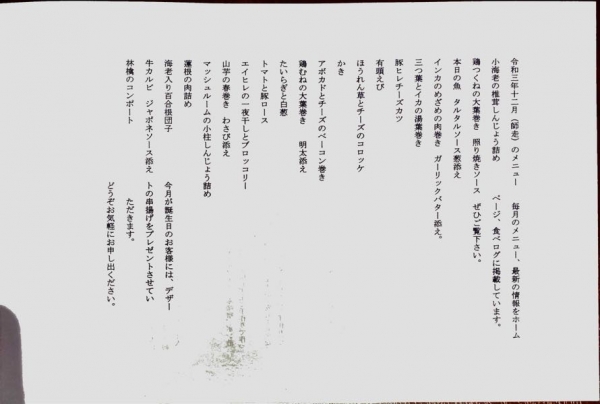 令和三年十二月（師走）のメニュー
小海老の椎茸しんじょう詰め
鶏つくねの大葉巻き 照り焼きソース
本日の魚 タルタルソース葱添え
インカのめざめの肉巻き ガーリックバター添え。
三つ葉とイカの湯葉巻き
豚ヒレチーズカツ
有頭えび
ほうれん草とチーズのコロッケ
かき
アボカドとチーズのベーコン巻き
鶏むねの大葉巻き 明太添え
たいらぎと白葱
トマトと豚ロース
エイヒレの一夜干しとブロッコリー
山芋の春巻き わさび添え
マッシュルームの小柱しんじょう詰め
蓮根の肉詰め
海老入り百合根団子
牛カルビ ジャポネソース添え
林檎のコンポート
毎月のメニュー、最新の情報をホーム
ページ、食べログに掲載しています。
ぜひご覧下さい。
今月が誕生日のお客様には、デザー
トの串揚げをプレゼントさせてい
ただきます。
どうぞお気軽にお申し出ください。